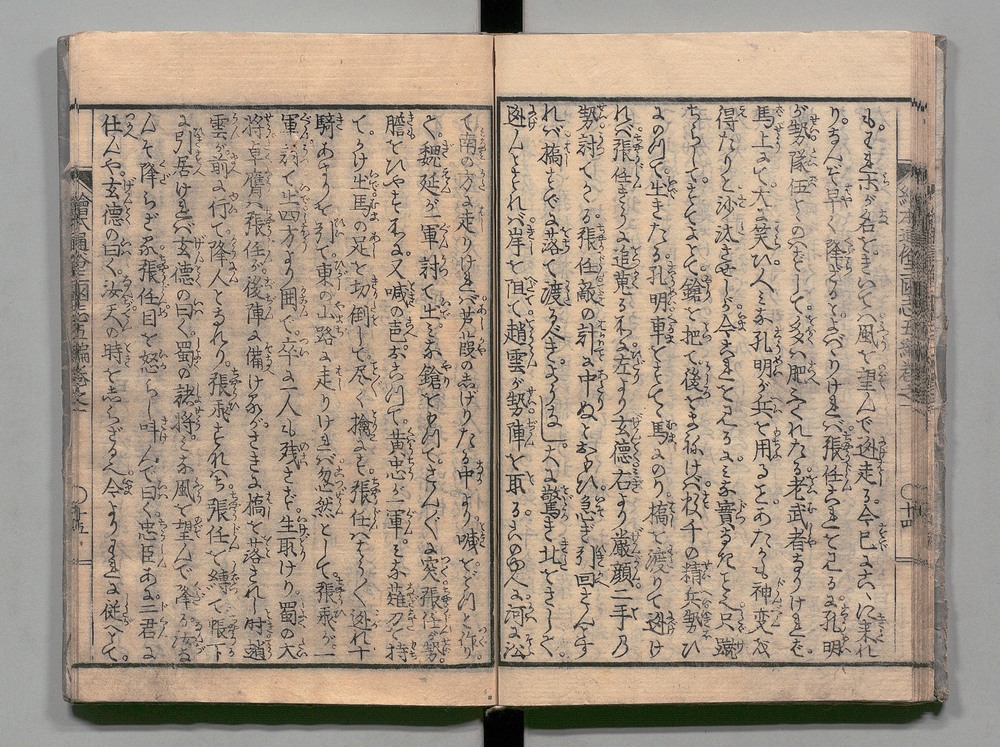 も。われホが名をきいてハ風を望んで迯走る。今已にこゝに來れ
り。なんぢ早く降せよとよバりけれバ張任これをミるに孔明
が勢隊伍とゝのハずして。多ハ肥ふくれたる老武者なりけれバ。
馬上にて大に笑ひ人ミな孔明が兵を用ること。あたかも神変を
得たりと沙汰せしが今これをミるにミな實なきことゝ
ちらしてすてよとて鎗を把て後をまねけバ數千の精兵勢ひ
にのつて。生きたる孔明車をすて馬にのり。橋を渡りて迯け
れバ張任きうに追蒐るわれ左より玄德右より嚴顔二手乃
勢討てかゝる張任敵の計に中ぬとおもひ急ぎ引回さんとす
れバ橋すでに落て渡るべきやうなし。大に驚き北をさしてに
迯んとすれバ岸を阻て趙雲が勢陣を取る。この河に沿
て南の方に走りけれバ芦葭のしげりたる中より喊をどつと作り
て魏延が一軍討て出ミな鎗をもつてさんざんに突。張任が勢
膽をひやすところに又喊の声おこつて黄忠が一軍ミな薙刀を持
てかけ出馬の足を切倒して尽く擒にす。張任ハやうやく迯れ十
騎あまりを引て東の山路に走りけれバ忽然として張飛が一
軍討て出四方より囲で。卒に一人も残さず生取けり。蜀の大
將卓膺ハ張任が後陣に備けるがさきに橋を落されし時趙
雲が前に行て。降人となれり。張飛すなハち張任を縛て帳下
に引居けれバ玄德の曰く。蜀の諸將。ミな風を望んで降る汝な
んぞ降らざる張任目を怒らし叫んで曰く忠臣あに二君に
仕んや玄德の曰く。汝天の時をしらざるや今よりわれに從へ
繪本通俗三國志五編卷之一
十四
繪本通俗三國志五編卷之一
十五